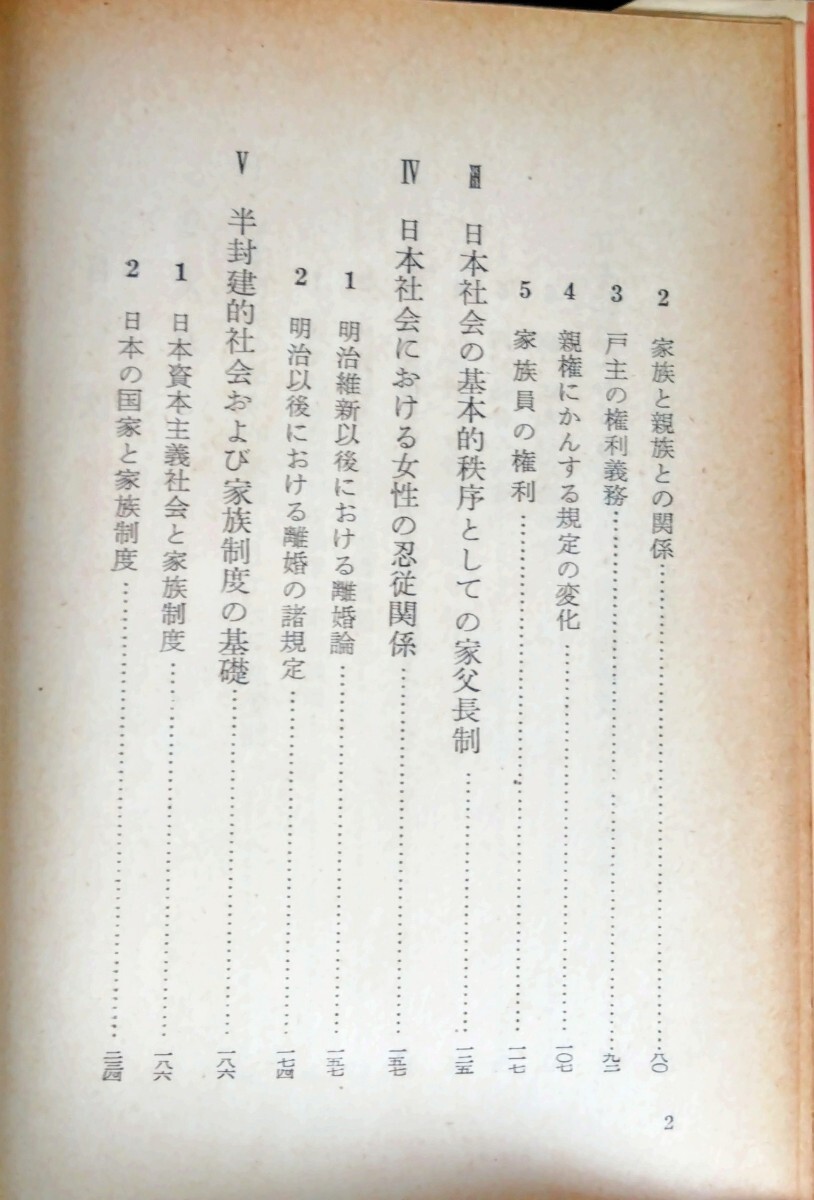 2 家族と親族との関係……八〇
3 戸主の権利義務……
4 親権にかんする規定の変化……一〇七
5 家族員の権利……一一七
Ⅲ 日本社会の基本的秩序としての家父長制……一二五
Ⅳ 日本社会における女性の忍従関係……一五七
1 明治維新以後における離婚論……一五七
2 明治以後における離婚の諸規定……一七四
Ⅴ 半封建的社会および家族制度の基礎……一八六
1 日本資本主義社会と家族制度……一八六
2 日本の国家と家族制度……
2